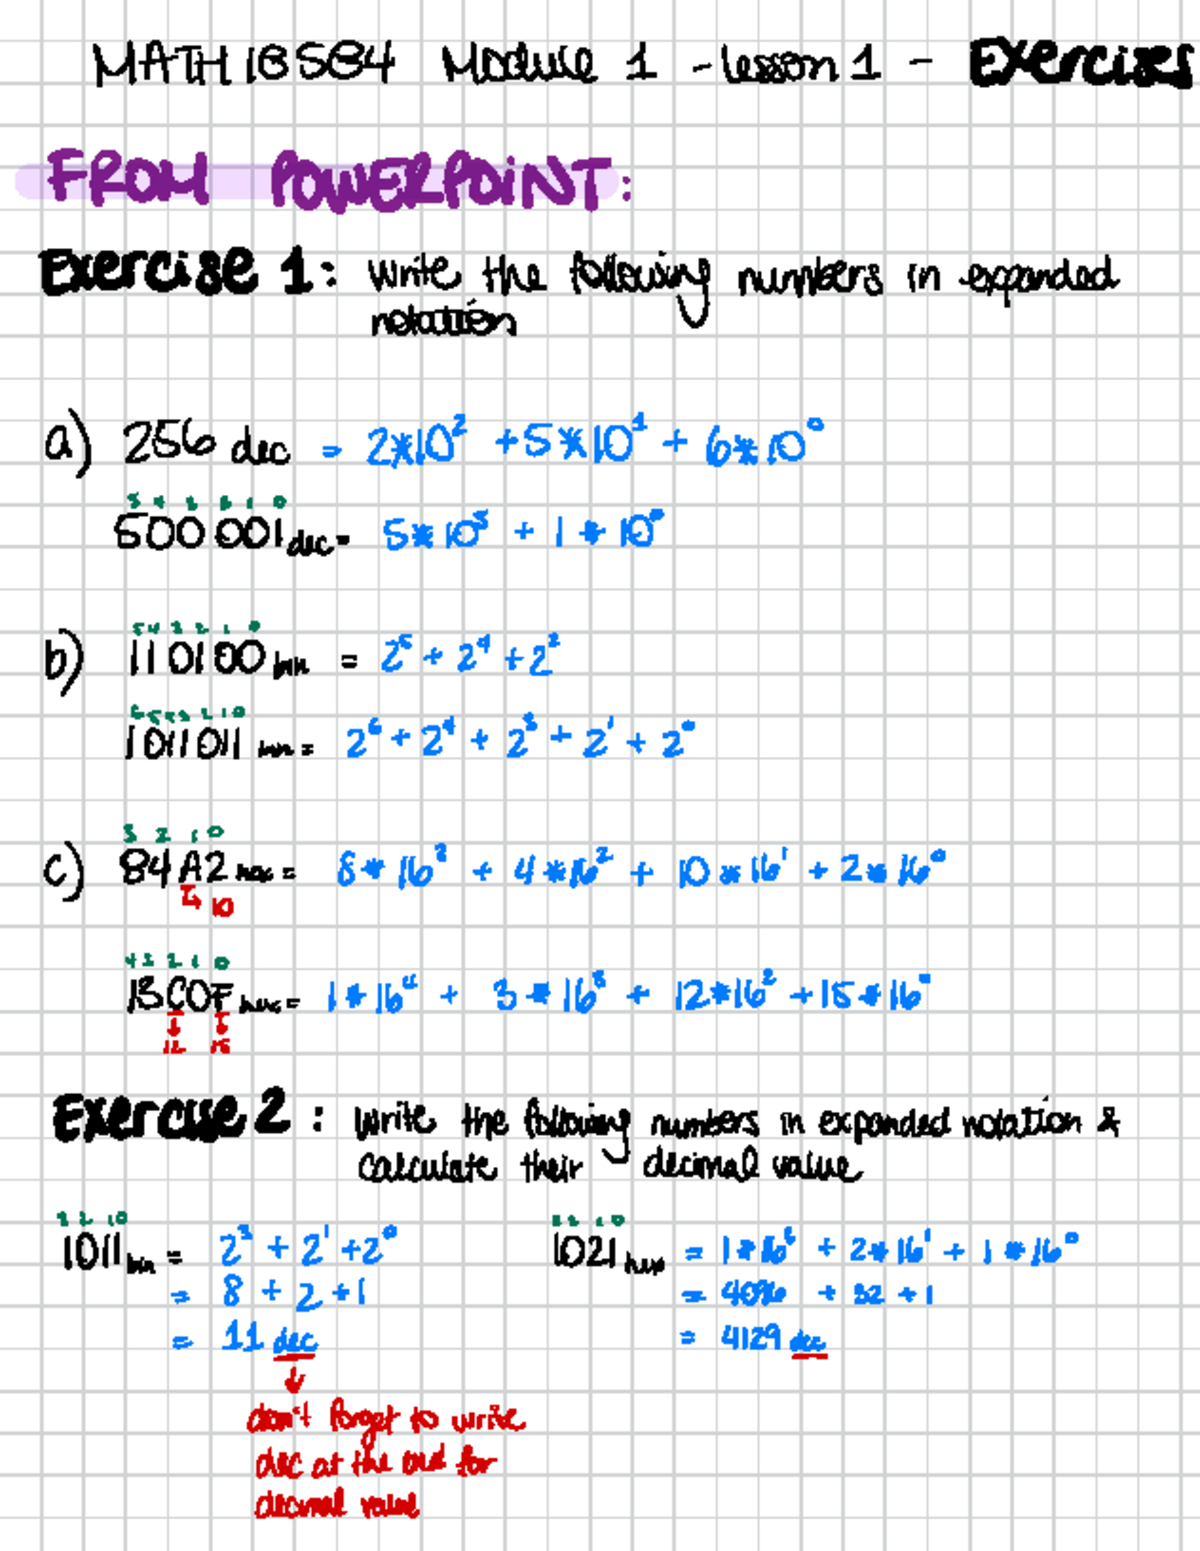 MATH18584 Module 1 - lesson 1 - Exercises
FROM POWERPOINT:
Exercise 1: Write the following numbers in expanded
notation
a) 256 dec = 2*10² + 5*10¹ + 6*10⁰
5 4 3 2 1 0
500 001 dec = 5*10⁵ + 1*10⁰
5 4 3 2 1 0
b) 110100 bin = 2⁵ + 2⁴ + 2²
6 5 4 3 2 1 0
1011011 bin = 2⁶ + 2⁴ + 2³ + 2¹ + 2⁰
3 2 1 0
c) 84A2 hex = 8*16³ + 4*16² + 10*16¹ + 2*16⁰
↳ 10
4 3 2 1 0
13C0F hex = 1*16⁴ + 3*16³ + 12*16² + 15*16⁰
↓ ↓
12 15
Exercise 2: Write the following numbers in expanded notation &
calculate their decimal value
3 2 1 0
1011 bin = 2³ + 2¹ + 2⁰
= 8 + 2 + 1
= 11 dec
↓
don't forget to write
dec at the end for
decimal value
3 2 1 0
1021 hex = 1*16³ + 2*16¹ + 1*16⁰
= 4096 + 32 + 1
= 4129 dec